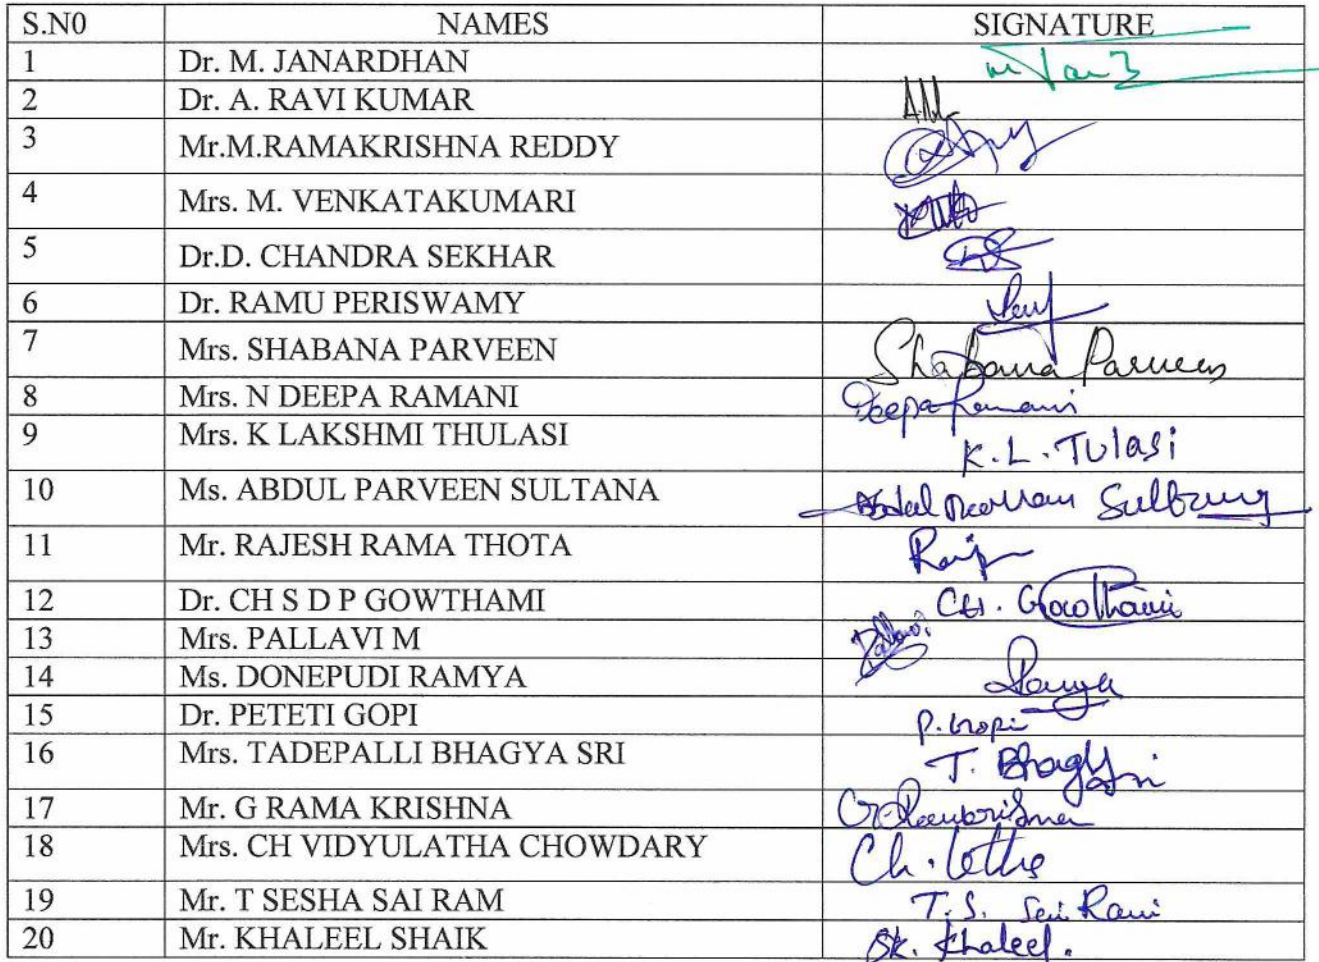 S.N0 NAMES SIGNATURE
1 Dr. M. JANARDHAN
2 Dr. A. RAVI KUMAR
3 Mr.M.RAMAKRISHNA REDDY
4 Mrs. M. VENKATAKUMARI
5 Dr.D. CHANDRA SEKHAR
6 Dr. RAMU PERISWAMY
7 Mrs. SHABANA PARVEEN Shabana Parveen
8 Mrs. N DEEPA RAMANI Deepa Ramani
9 Mrs. K LAKSHMI THULASI K.L.Tulasi
10 Ms. ABDUL PARVEEN SULTANA
11 Mr. RAJESH RAMA THOTA
12 Dr. CH S D P GOWTHAMI CH. Gowthami
13 Mrs. PALLAVI M Pallavi
14 Ms. DONEPUDI RAMYA Ramya
15 Dr. PETETI GOPI P. Gopi
16 Mrs. TADEPALLI BHAGYA SRI T. Bhagya Sri
17 Mr. G RAMA KRISHNA G. Ramkrishna
18 Mrs. CH VIDYULATHA CHOWDARY Ch. Latha
19 Mr. T SESHA SAI RAM T.S. Sai Ram
20 Mr. KHALEEL SHAIK SK. Khaleel.